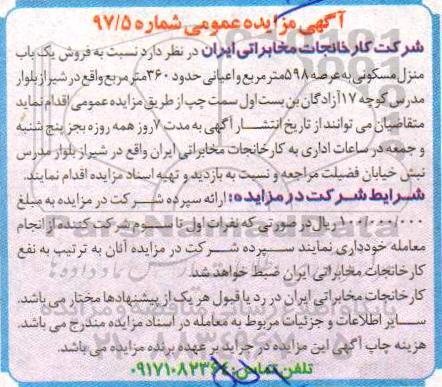 آگهی مزایده عمومی شماره ۹۷/۵
شرکت کارخانجات مخابراتی ایران در نظر دارد نسبت به فروش یک باب
منزل مسکونی به عرصه ۵۹۸ متر مربع و اعیانی حدود ۳۶۰ متر مربع واقع در شیراز بلوار
مدرس کوچه ۱۷ آزادگان بن بست اول سمت چپ از طریق مزایده عمومی اقدام نماید
متقاضیان می توانند از تاریخ انتشار آگهی به مدت ۷ روز همه روزه بجز پنج شنبه
و جمعه در ساعات اداری به کارخانجات مخابراتی ایران واقع در شیراز بلوار مدرس
نبش خیابان فضیلت مراجعه و نسبت به بازدید و تهیه اسناد مزایده اقدام نمایند.
شرایط شرکت در مزایده: ارائه سپرده شرکت در مزایده به مبلغ
۱۰۰/۰۰۰/۰۰۰ ریال در صورتی که نفرات اول تا سوم شرکت کننده از انجام
معامله خودداری نمایند سپرده شرکت در مزایده آنان به ترتیب به نفع
کارخانجات مخابراتی ایران ضبط خواهد شد.
کارخانجات مخابراتی ایران در رد یا قبول هر یک از پیشنهادها مختار می باشد.
سایر اطلاعات و جزئیات مربوط به معامله در اسناد مزایده مندرج می باشد.
هزینه چاپ آگهی این مزایده در جراید بر عهده برنده مزایده می باشد.
تلفن تماس: ۰۹۱۷۱۰۸۲۳۶۴